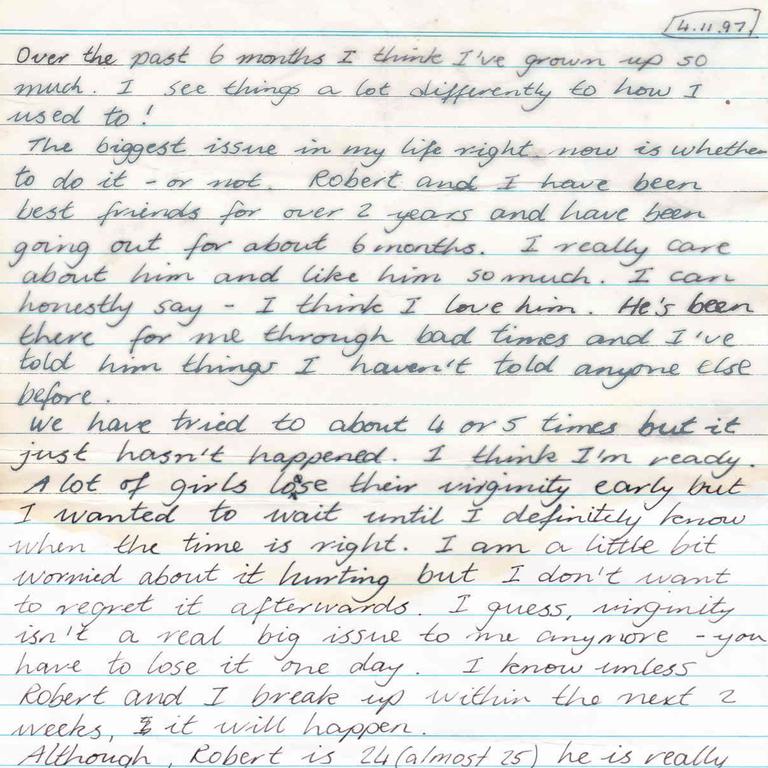 4.11.97
Over the past 6 months I think I've grown up so
much. I see things a lot differently to how I
used to!
The biggest issue in my life right now is whether
to do it - or not. Robert and I have been
best friends for over 2 years and have been
going out for about 6 months. I really care
about him and like him so much. I can
honestly say - I think I love him. He's been
there for me through bad times and I've
told him things I haven't told anyone else
before.
We have tried to about 4 or 5 times but it
just hasn't happened. I think I'm ready.
A lot of girls lose their virginity early but
I wanted to wait until I definitely know
when the time is right. I am a little bit
worried about it hurting but I don't want
to regret it afterwards. I guess, virginity
isn't a real big issue to me anymore - you
have to lose it one day. I know unless
Robert and I break up within the next 2
weeks, it will happen.
Although, Robert is 24 (almost 25) he is really